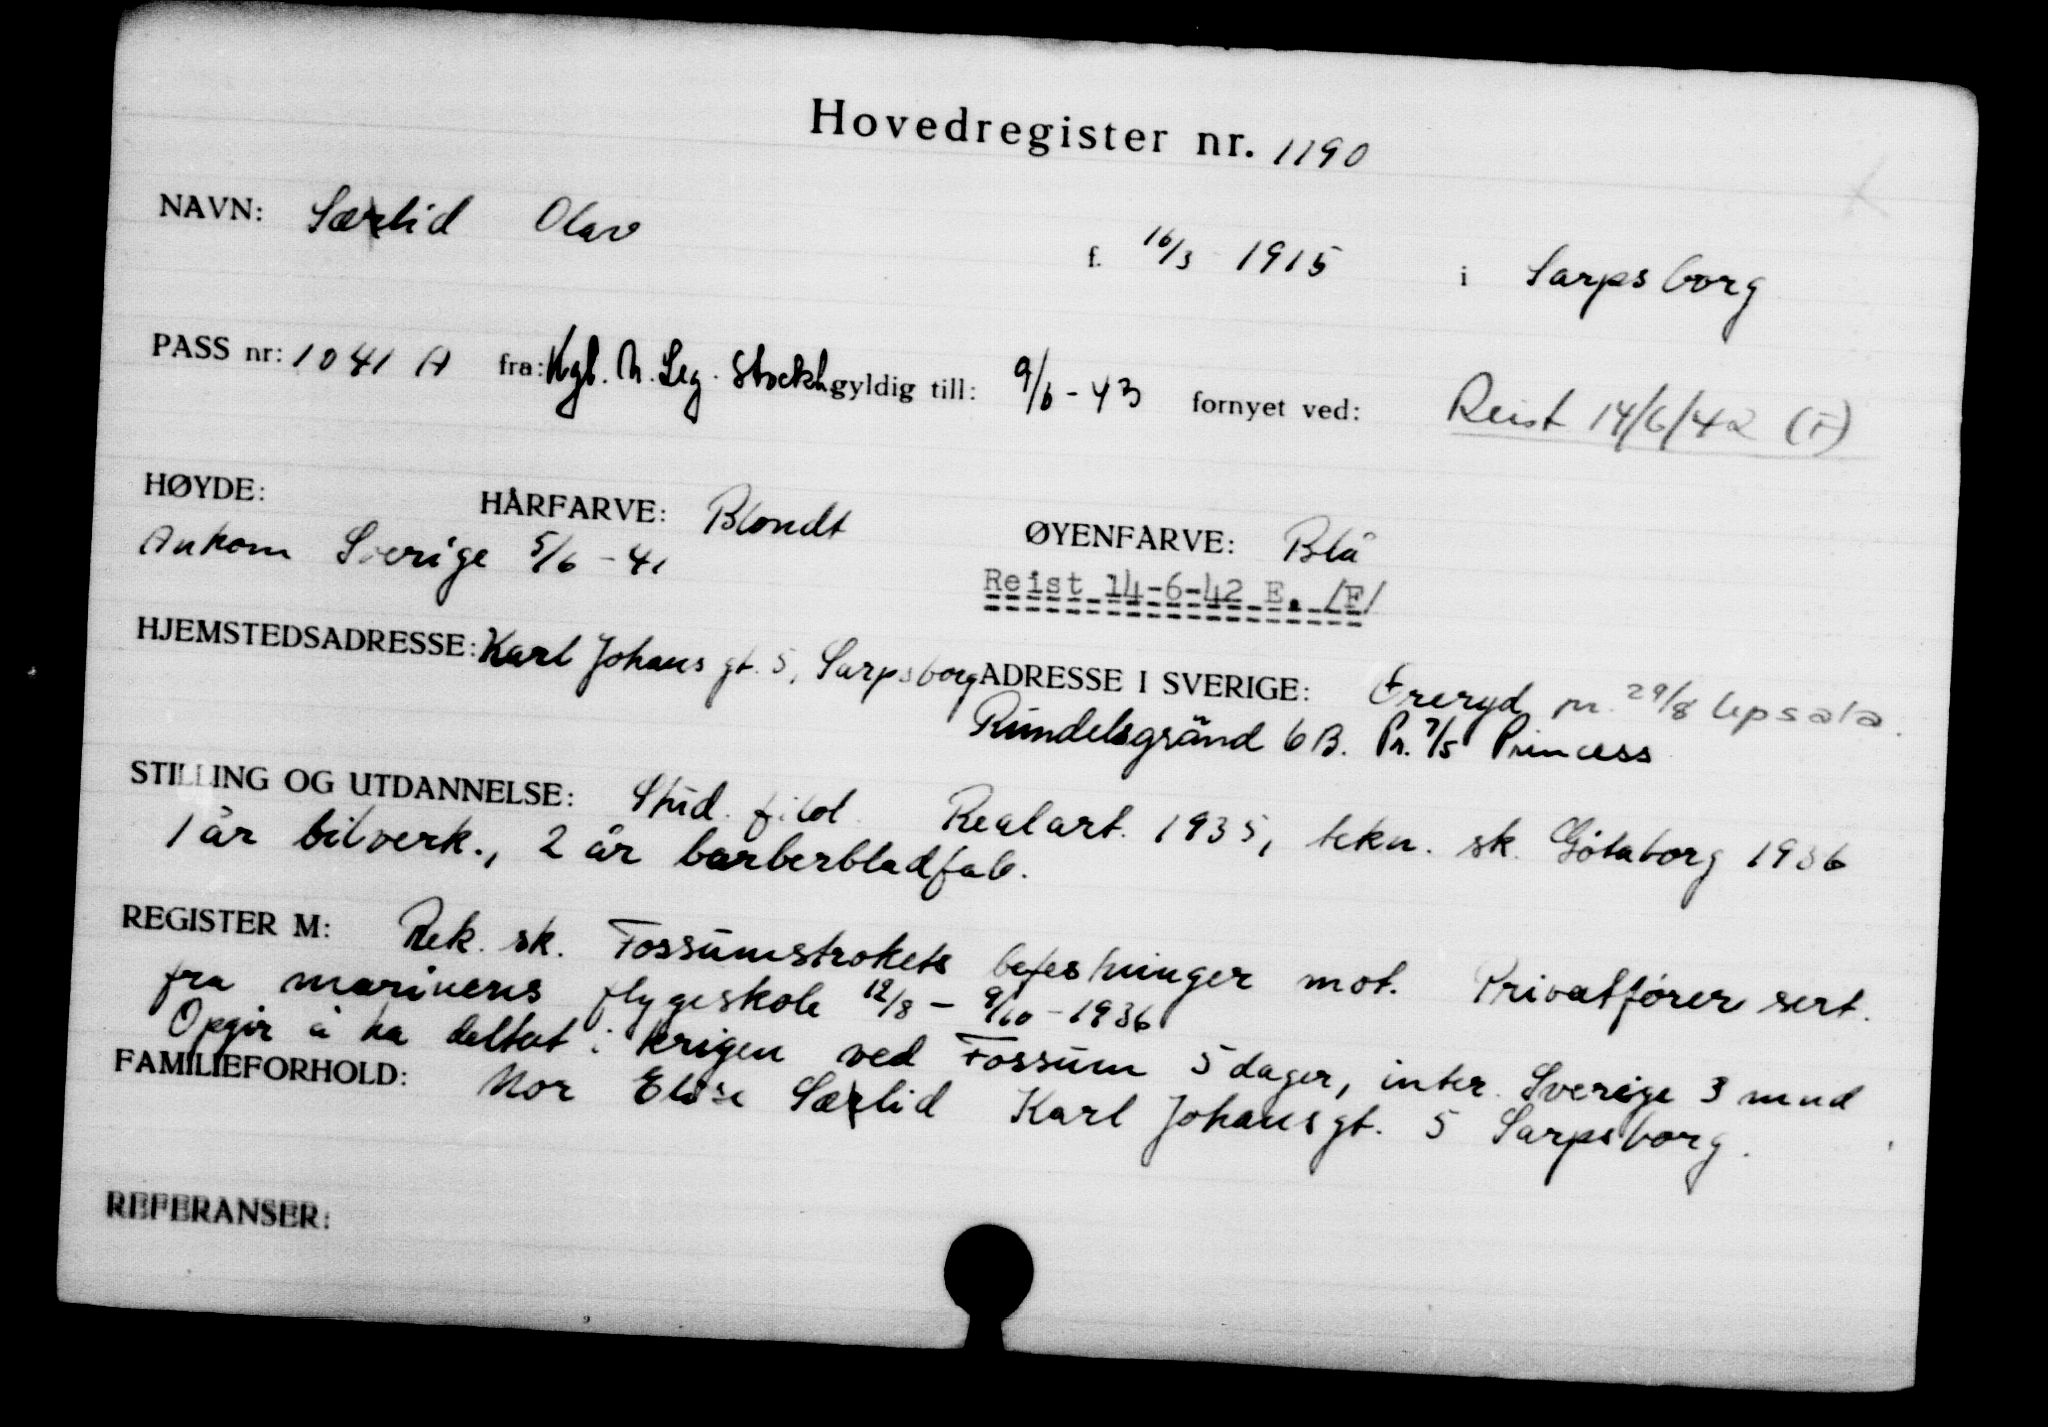 Hovedregister nr. 1190
NAVN: Særlid Olav f. 16/3 1915 i Sarpsborg
PASS nr: 1041 A fra: Kgl. N. Leg. Stockh. gyldig till: 9/6-43 fornyet ved: Reist 14/6/42 (F)
HØYDE: HÅRFARVE: Blondt ØYENFARVE: Blå
Ankom Sverige 5/6-41 Reist 14-6-42 E. /F/
HJEMSTEDSADRESSE: Karl Johans gt. 5, Sarpsborg ADRESSE I SVERIGE: Öreryd pr. 29/8 Upsala.
Rundelsgränd 6 B. Pr. 7/5 Princess
STILLING OG UTDANNELSE: Stud. filol. Realart. 1935, tekn. sk. Gøtaborg 1936
1 år bilverk., 2 år barberbladfab.
REGISTER M: Rek. sk. Fossumstrokets befestninger mot. Privatfører sert.
fra marinens flygeskole 12/8 - 9/10 - 1936
Opgir å ha deltat i krigen ved Fossum 5 dager, inter. Sverige 3 mnd
FAMILIEFORHOLD: Mor Elise Særlid Karl Johansgt. 5 Sarpsborg.
REFERANSER: